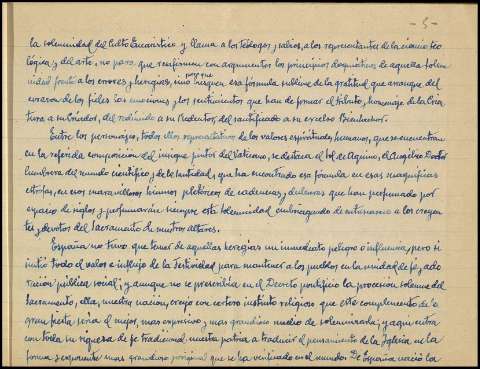 - 5 -
la solemnidad del Culto Eucarístico y llama a los Teólogos, sabios, a los representantes de la ciencia teo
lógica y del arte, no para que reafirmen con argumentos los principios dogmáticos de aquella solem
nidad frente a los errores y heregias, sino porque esa fórmula sublime de la gratitud que arranque del
corazon de los fieles las emociones y los sentimientos que han de formar el tributo, homenaje de la Cria
tura a su Criador, del redimido a su Redentor, del santificado a su excelso Bienhechor.
Entre los personajes, todos ellos representativos de los valores espirituales, humanos, que se encuentran
en la referida composicion del insigne pintor del Vaticano, se destaca el Sol de Aquino, el Angélico Doctor
lumbrera del mundo científico y de la Santidad, que ha encontrado esa formula en esas magníficas
estrofas, en esos maravillosos himnos pletóricos de cadencias, dulzuras que han perfumado por
espacio de siglos y perfumarán siempre esta solemnidad embriagando de entusiasmo a los creyen
tes y devotos del Sacramento de nuestros altares.
España no tuvo que temer de aquellas heregias un inmediato peligro o influencia, pero si
sintió todo el valor e influjo de la Festividad para mantener a los pueblos en la unidad de fé, ado
ración pública social; y aunque no se prescribia en el Decreto pontificio la procesion solemne del
Sacramento, ella, nuestra nación, creyó con certero instinto religioso que este complemento de la
gran fiesta seria el mejor, mas expresivo y mas grandioso medio de solemnizarla; y aqui entra
con toda su riqueza de fe tradicional nuestra patria a traducir el pensamiento de la Iglesia, en la
forma y exponente mas grandioso y original que se ha verificado en el mundo. De España nació la